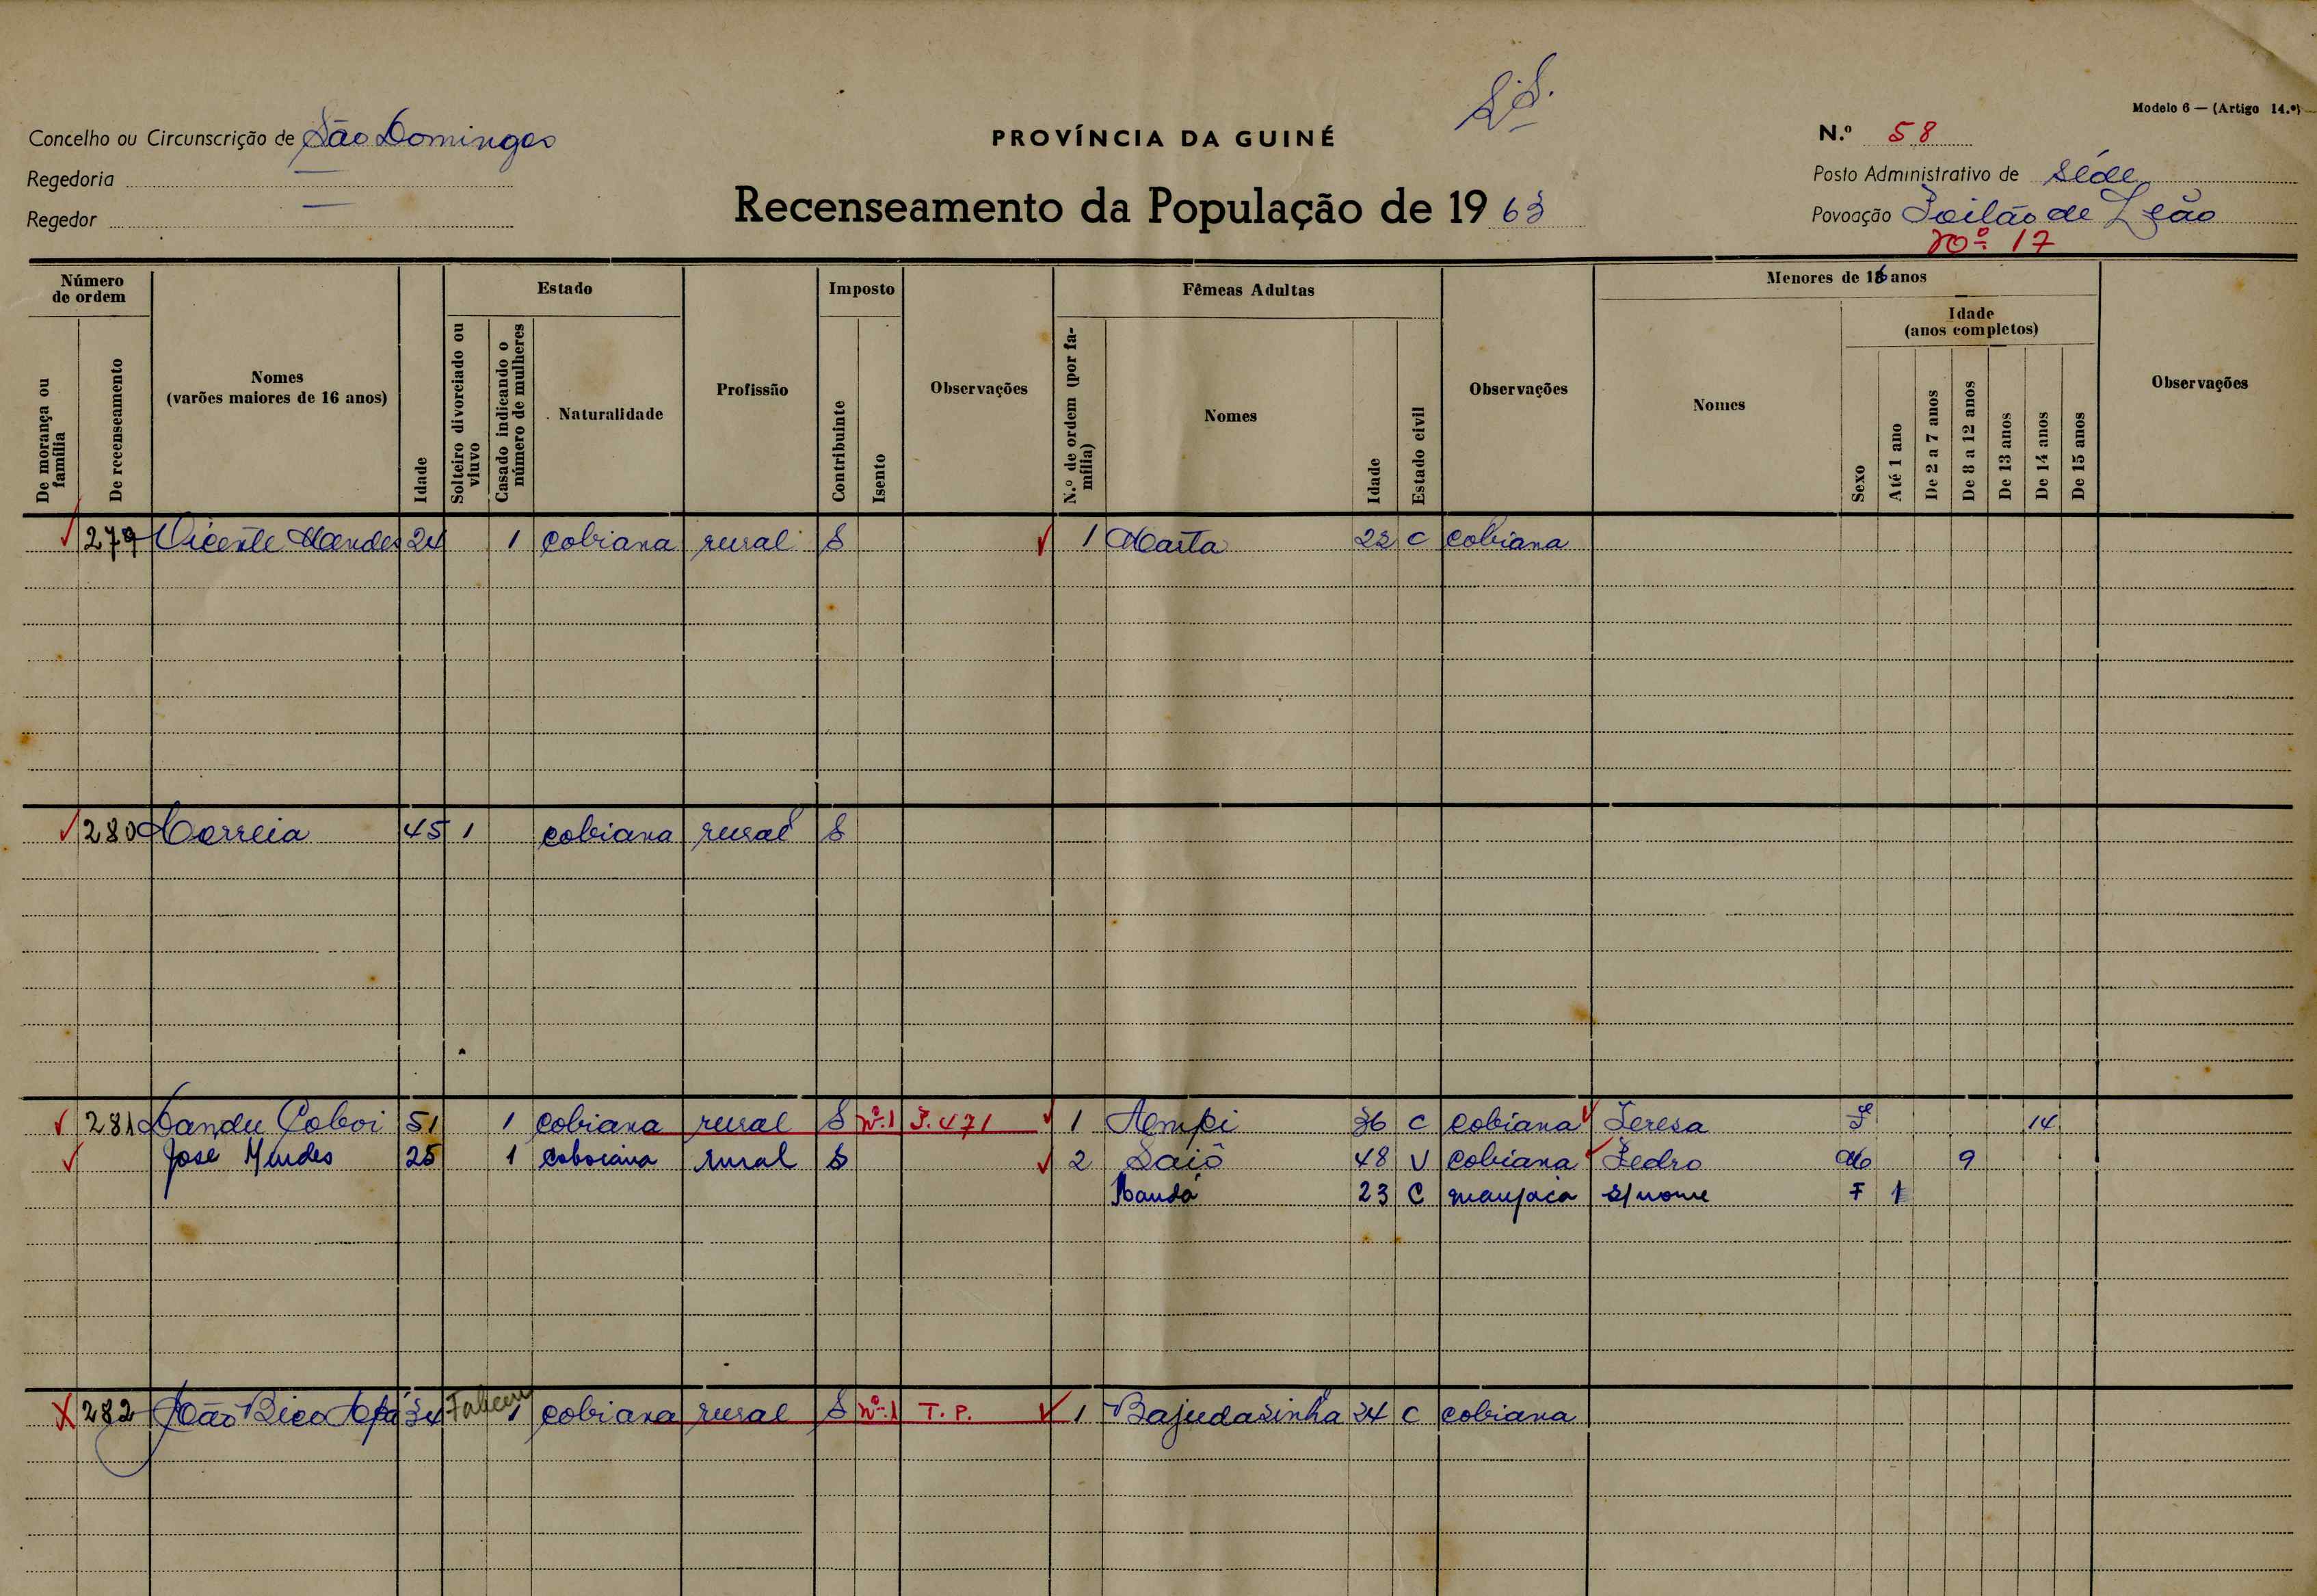 Modelo 6 — (Artigo 14.º)
Concelho ou Circunscrição de São Domingos
PROVÍNCIA DA GUINÉ
N.º 58
Regedoria —
Posto Administrativo de Séde
Regedor —
Recenseamento da População de 1963
Povoação Poilão de Leão
Nº 17
Número de ordem
Estado
Imposto
Fêmeas Adultas
Menores de 16 anos
Idade
(anos completos)
De morança ou família
De recenseamento
Nomes
(varões maiores de 16 anos)
Idade
Solteiro divorciado ou viuvo
Casado indicando o número de mulheres
Naturalidade
Profissão
Contribuinte
Isento
Observações
N.º de ordem (por família)
Nomes
Idade
Estado civil
Observações
Nomes
Sexo
Até 1 ano
De 2 a 7 anos
De 8 a 12 anos
De 13 anos
De 14 anos
De 15 anos
Observações
279 Vicente Mendes 24 1 cobiana rural S 1 Marta 22 C cobiana
280 Correia 45 1 cobiana rural S
281 Dandu Coboi 51 1 cobiana rural S nº 1 P. 471 1 36 C cobiana Teresa F 14
José Mendes 25 1 coboiana rural S 2 Saiô 48 V cobiana Pedro M 9
23 C manjaca s/nome F 1
282 João Bico 34 Faleceu 1 cobiana rural S nº 1 T. P. 1 Bajudasinha 24 C cobiana